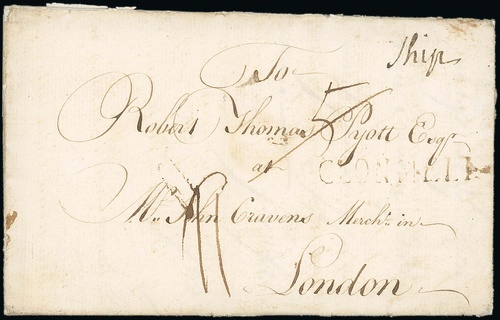 Ship
To
Robert Thomas Pyott Esqr
at
Mr. John Cravens Merch.t in
London